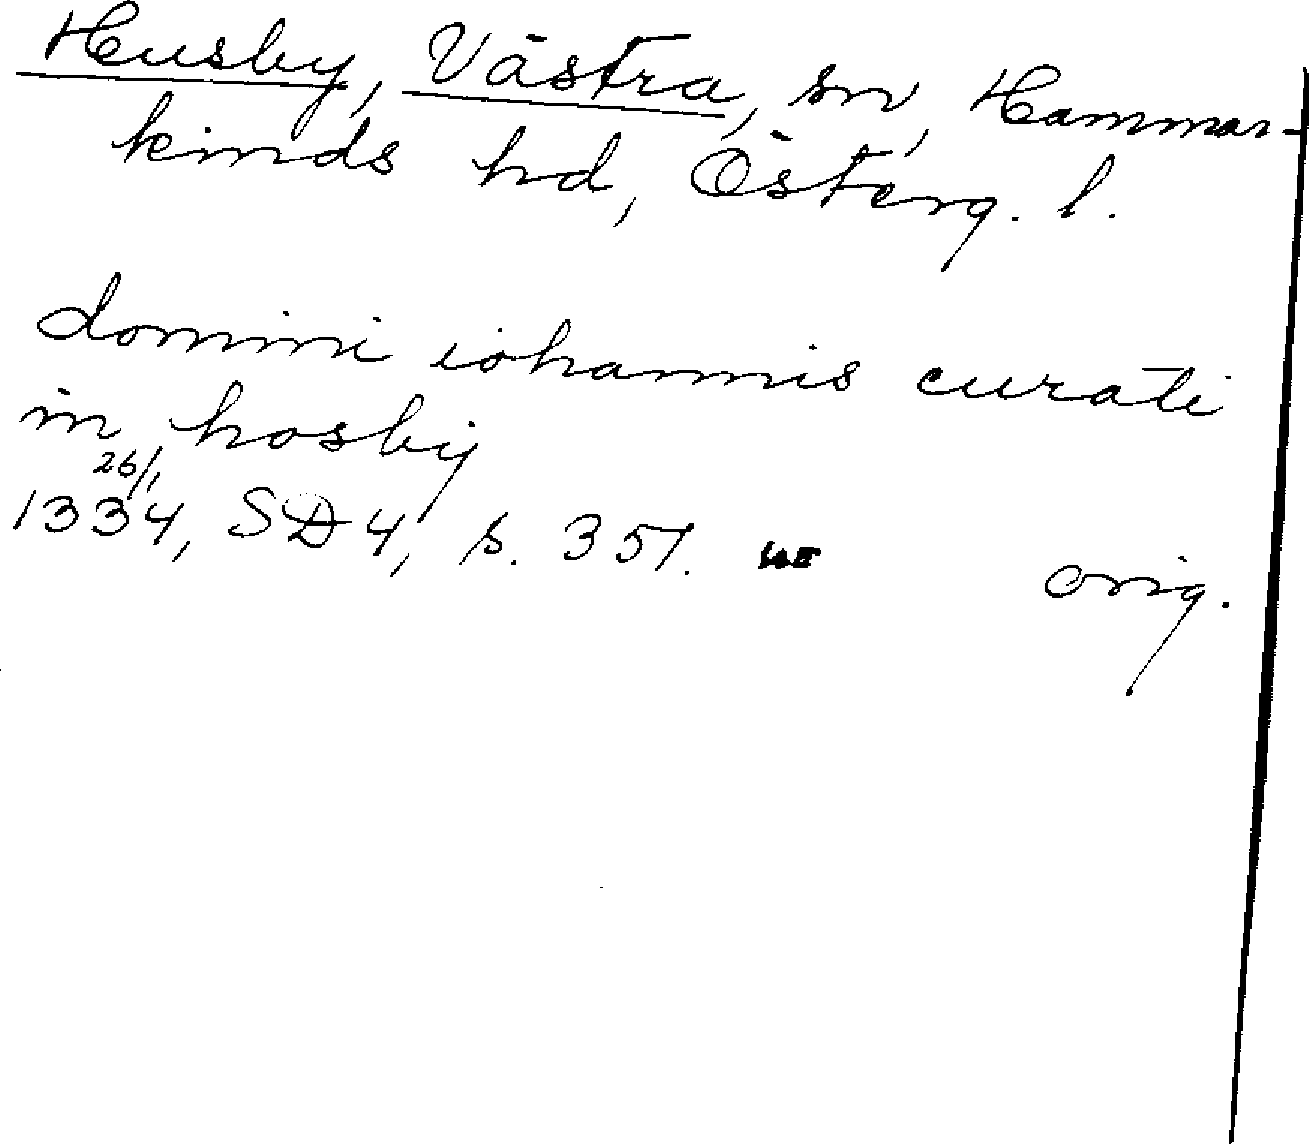 Husby, Västra, sn, Hammar-
kinds hd, Österg. l.
domini iohannis curati
in hosby
26/1
1334, SD 4, s. 357.
orig.